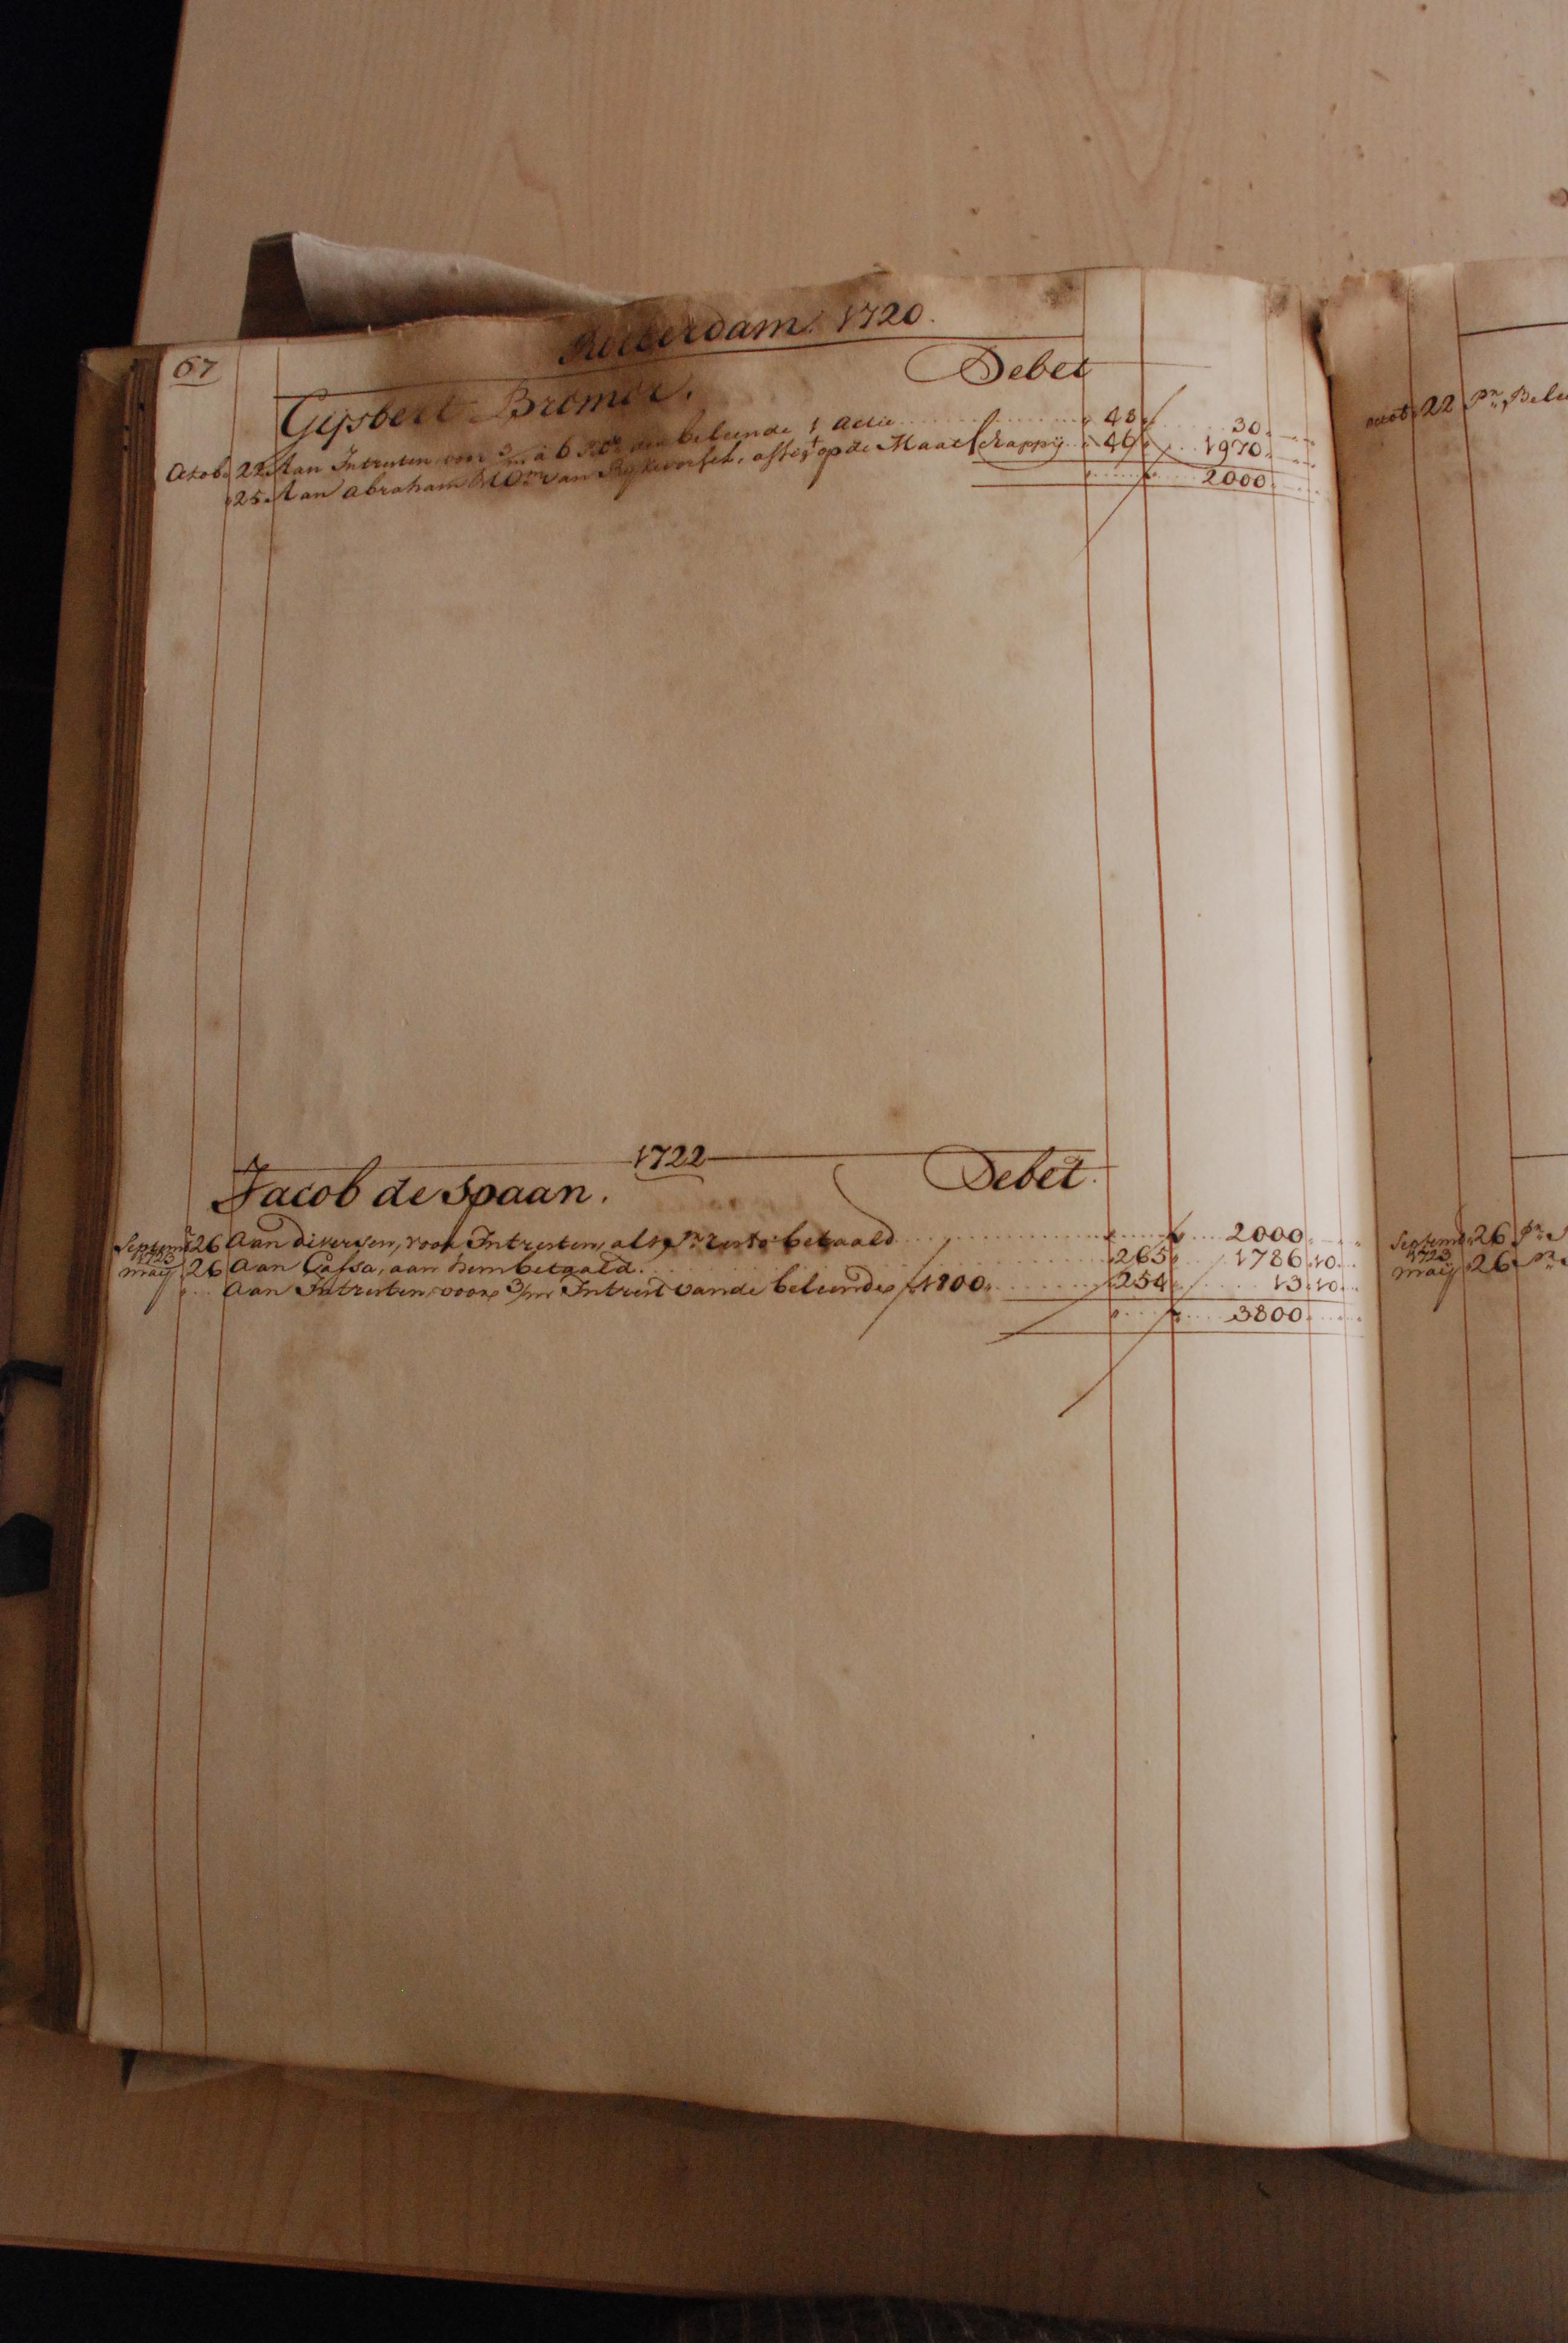 67
Rotterdam 1720.
Debet
Gijsbert Bromer.
Actob. 22 Aan Intresten voor 3/m a 6 beleende 1 actie 48 30
25 Aan Abraham van Rijkevorsel, assig.t op de Maatschappij 46 1970
2000
1722
Jacob de Spaan. Debet.
Septemb 26 Aan diversen, voor Intresten, als p.r resto betaald 2000
1723
maij 26 Aan Cassa, aan hem betaald. 265 1786 10
Aan Intresten voor 3/m Intrest vande beleende f 1800 254 13 10
3800
octob 22 P.r Bele
Septemb 26 P.r
1723
maij 26 P.r